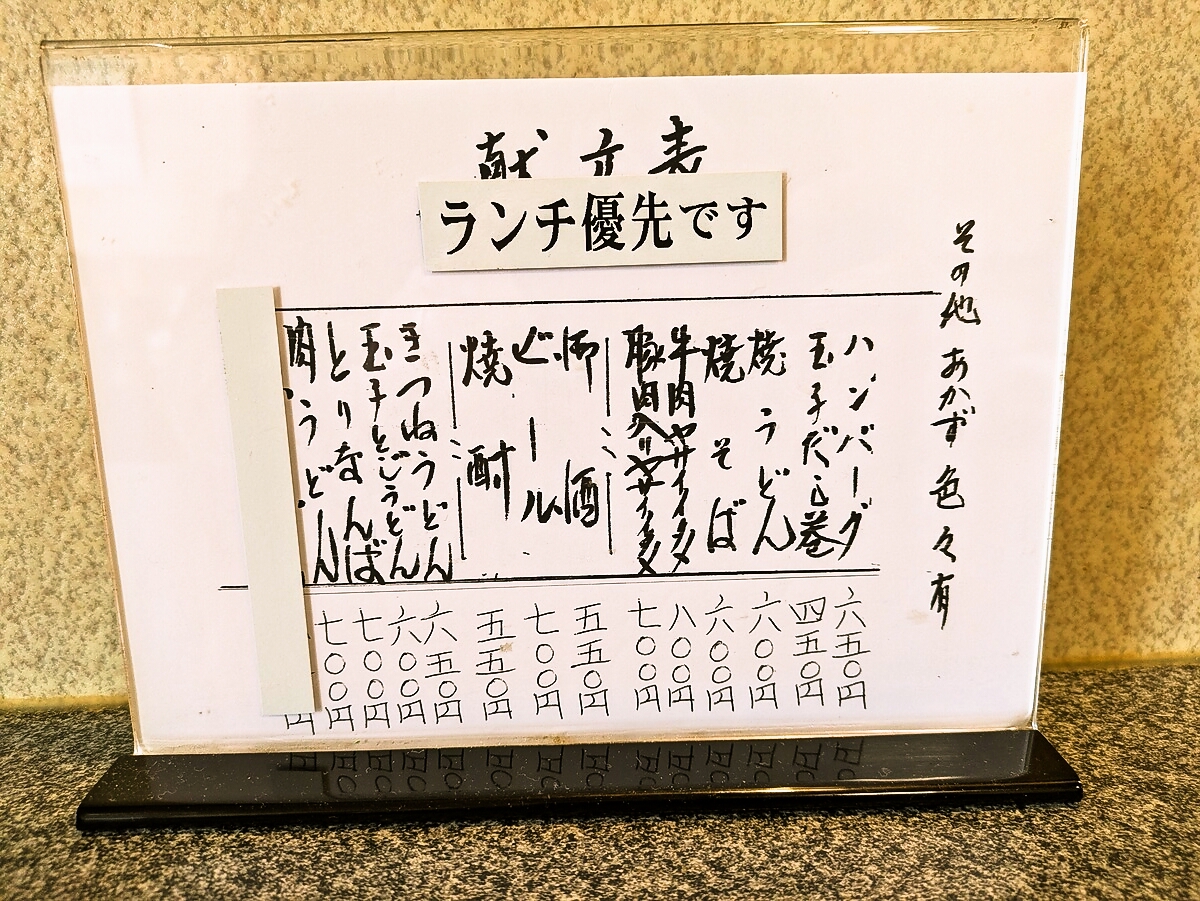 献立表
ランチ優先です
その他 おかず 色々有
ハンバーグ 六五〇円
玉子だし巻 四五〇円
焼うどん 六〇〇円
焼そば 六〇〇円
牛肉ヤサイイタメ 八〇〇円
豚肉入りヤサイイタメ 七〇〇円
御酒 五五〇円
ビール 七〇〇円
焼酎 五五〇円
きつねうどん 六五〇円
玉子とじうどん 六〇〇円
とりなんば 七〇〇円
肉うどん 七〇〇円
円